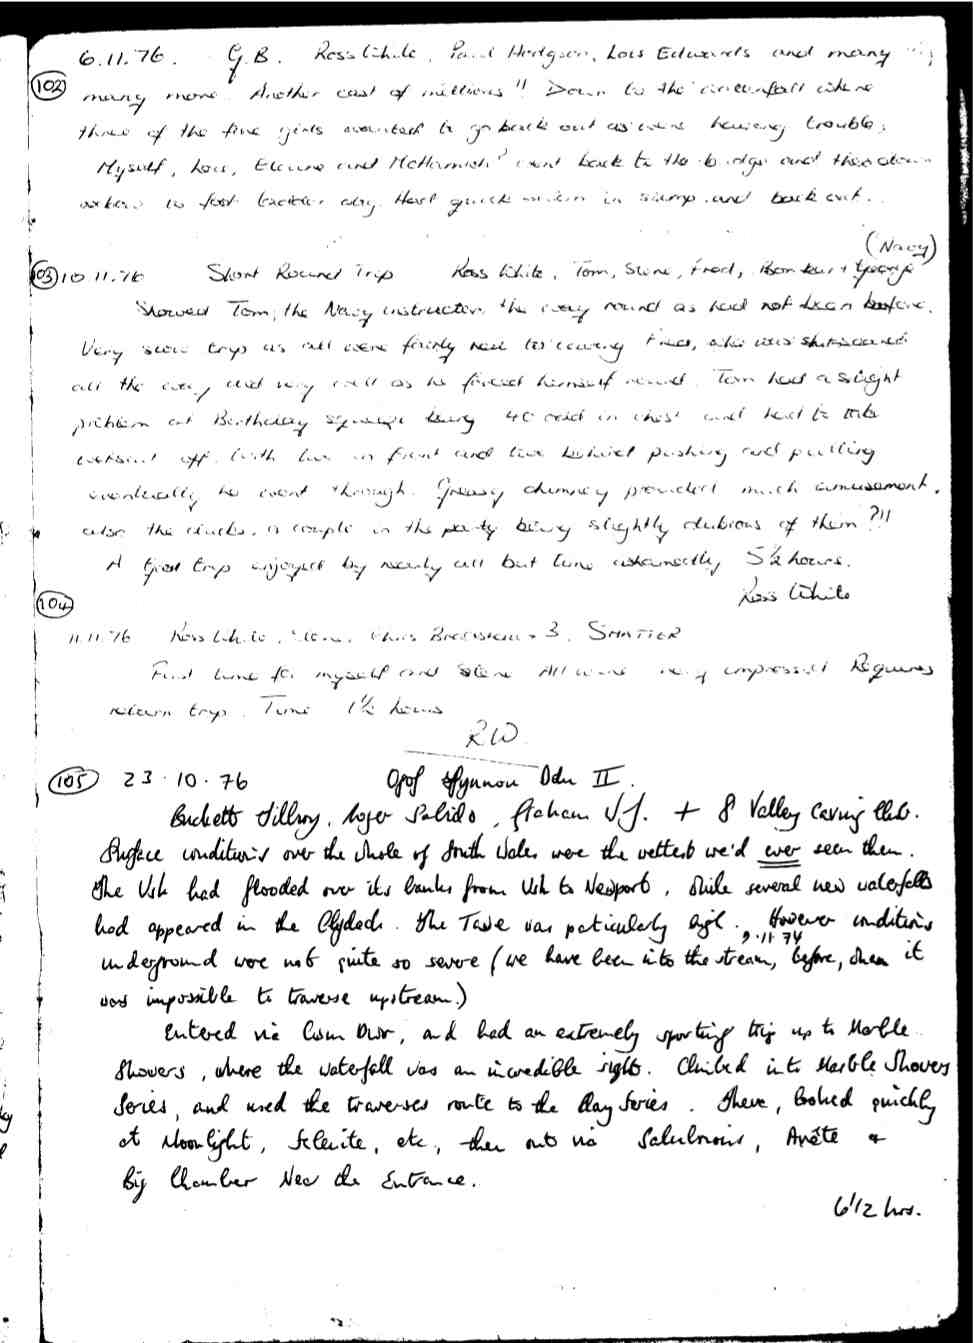 6.11.76. G.B. Ross White, Paul Hodgson, Lois Edwards and many
(102) many more. Another cast of millions!! Down to the waterfall where
three of the five girls wanted to go back out as were having trouble.
Myself, Lois, and went back to the bridge and then down
to far. Had quick in sump and back out.
(Navy)
(103) 10.11.76 Short Round Trip Ross White, Tom, Steve, Fred,
Showed Tom, the Navy instructor, the way round as had not been before.
Very slow trip as all were fairly new to caving Fred, who was
all the way, did very well as he forced himself round. Tom had a slight
problem at Bertheley squeeze being 40 odd in chest and had to take
off. With two in front and two behind pushing and pulling
eventually he went through. Greasy chimney provided much amusement,
also the ducks, a couple in the party being slightly dubious of them ?!!
A good trip enjoyed by nearly all but time 5½ hours.
Ross White
(104)
11.11.76 Ross White, Steve, Chris + 3. SHATTER
First time for myself and Steve All were very impressed Requires
return trip. Time 1½ hours
RW
(105) 23.10.76 Ogof Ffynnon Ddu II.
Buckett Tilbury, Roger Salido, Graham + 8 Valley Caving Club.
Surface conditions over the whole of South Wales were the wettest we'd ever seen them.
The Usk had flooded over its banks from Usk to Newport, while several new waterfalls
had appeared in the Clydach. The Tawe was paticularly high. However conditions
9.11.74
underground were not quite so severe (we have been into the stream, before, when it
was impossible to traverse upstream.)
Entered via Cwm Dwr, and had an extremely sporting trip up to Marble
Showers, where the waterfall was an incredible sight. Climbed into Marble Showers
Series, and used the traverses route to the Clay Series. There, looked quickly
at Moonlight, Selenite, etc, then out via Salubrious, Arête &
Big Chamber Near the Entrance.
6 1/2 hrs.